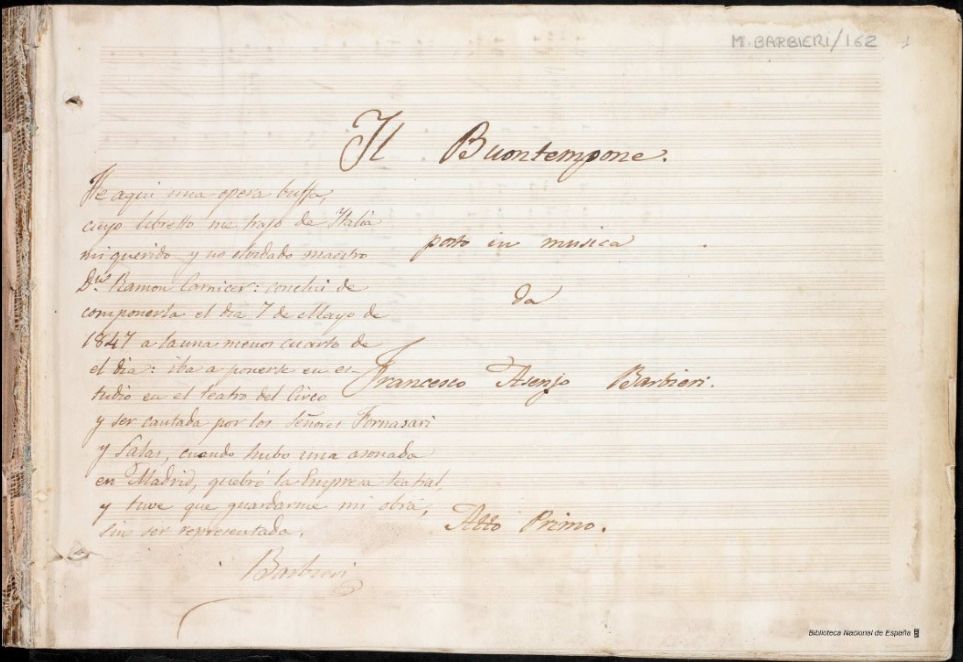 M. BARBIERI/162
1
Il Buontempone.
He aqui una opera buffa,
cuyo libretto me trajo de Italia
mi querido y no olvidado maestro
Dn. Ramon Carnicer: conclui de
componerla el dia 7 de Mayo de
1847 a la una menos cuarto de
el dia: iba a ponerse en es-
tudio en el teatro del Circo
y ser cantada por los Señores Fornasari
y Salas, cuando hubo una asonada
en Madrid, quebró la Empresa teatral,
y tuve que guardarme mi obra,
sin ser representada.
Barbieri
posto in musica
da
Francesco Asenjo Barbieri.
Atto Primo.
Biblioteca Nacional de España